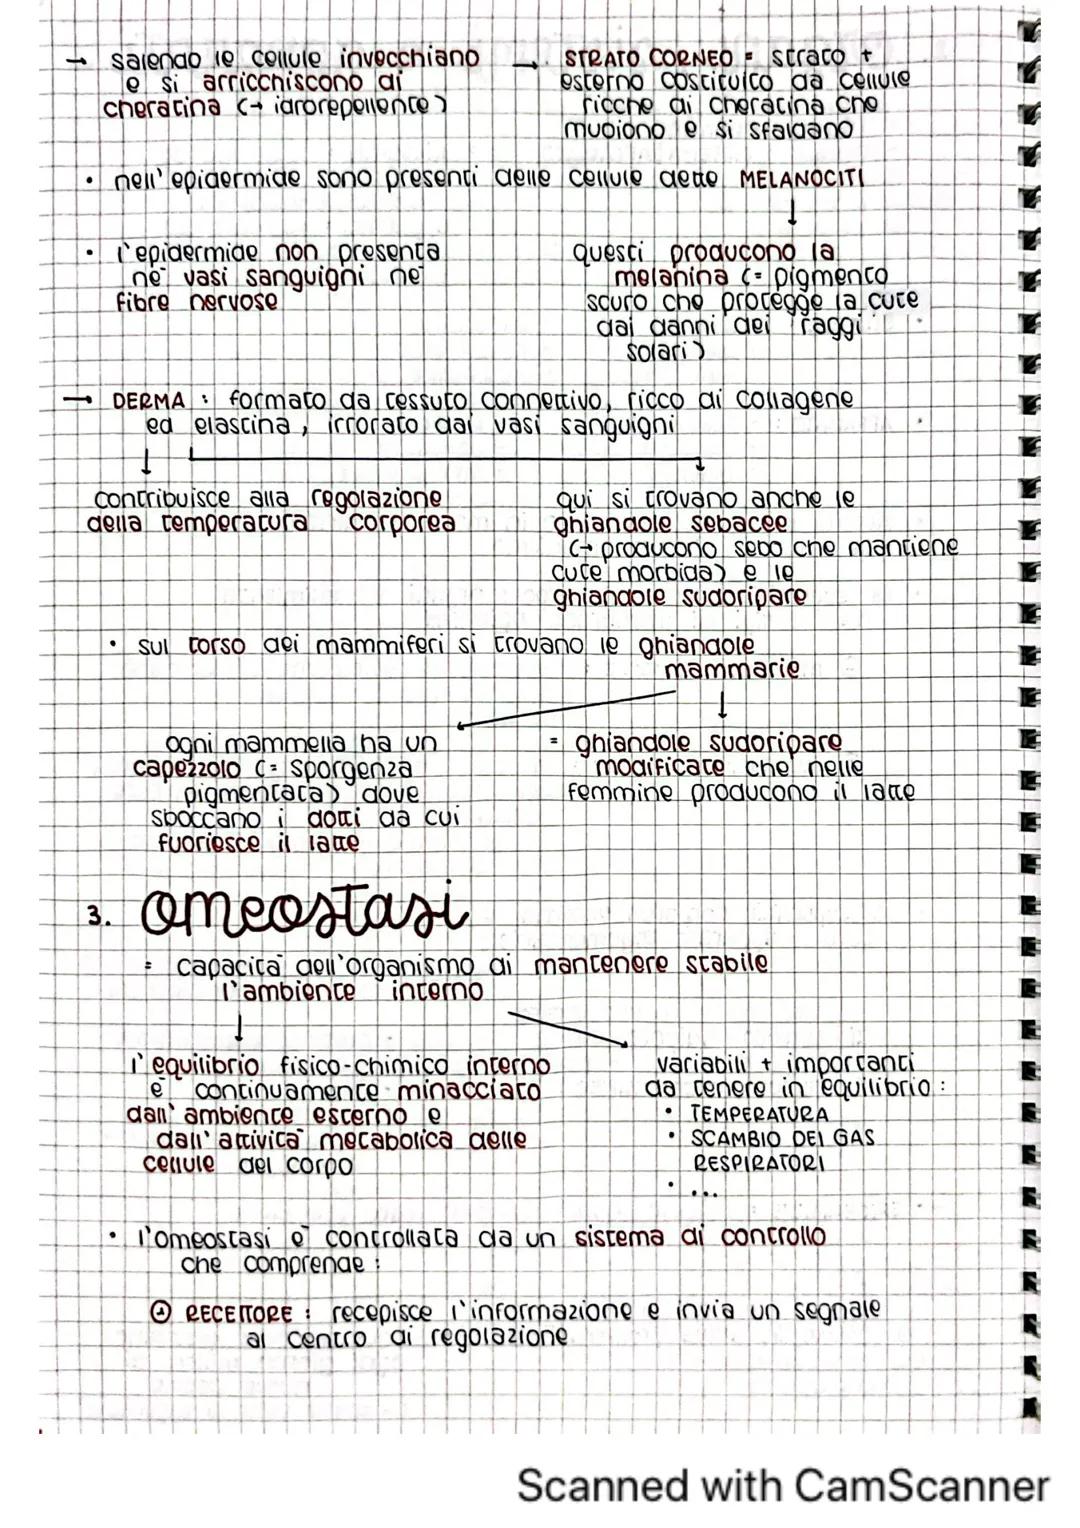 → salendo le cellule invecchiano
e si arricchiscono di
cheratina (→ idrorepellente)
→ STRATO CORNEO = strato +
esterno costituito da cellule
ricche di cheratina che
muoiono e si sfaldano
• nell'epidermide sono presenti delle cellule dette MELANOCITI
↓
• l'epidermide non presenta
né vasi sanguigni né
fibre nervose
questi producono la
melanina (= pigmento
scuro che protegge la cute
dai danni dei raggi
solari)
→ DERMA : formato da tessuto connettivo, ricco di collagene
ed elastina, irrorato dai vasi sanguigni
contribuisce alla regolazione
della temperatura corporea
qui si trovano anche le
ghiandole sebacee
(→ producono sebo che mantiene
cute morbida) e le
ghiandole sudoripare
• sul torso dei mammiferi si trovano le ghiandole
mammarie
ogni mammella ha un
capezzolo (= sporgenza
pigmentata) dove
sboccano i dotti da cui
fuoriesce il latte
= ghiandole sudoripare
modificate che nelle
femmine producono il latte
3. omeostasi
= capacità dell'organismo di mantenere stabile
l'ambiente interno
l'equilibrio fisico-chimico interno
è continuamente minacciato
dall'ambiente esterno e
dall'attività metabolica delle
cellule del corpo
variabili + importanti
da tenere in equilibrio :
• TEMPERATURA
• SCAMBIO DEI GAS
RESPIRATORI
• ...
• l'omeostasi è controllata da un sistema di controllo
che comprende :
① RECETTORE : recepisce l'informazione e invia un segnale
al centro di regolazione
Scanned with CamScanner